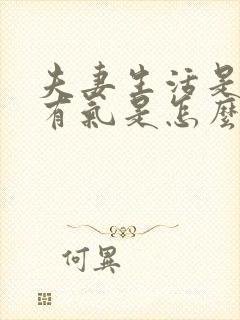 夫妻生活是
有氣是怎麼
何異